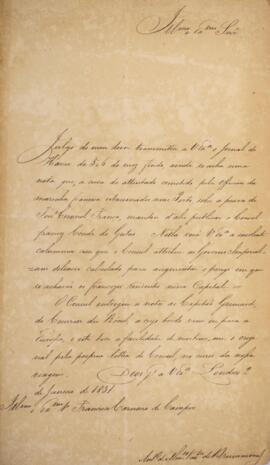 Illmo e Exmo Snr
Julgo do meu dever transmittir a V Exa o Jornal do
Havre de 5 e 6 do mez findo, aonde se acha uma
nota que, a cerca do attentado comettido pela Officiaes da
marinha franceza estacionados nesse Porto sobre a pessoa do
Snr General França, mandou d'ahi publicar o Consul
francez Conde de Gestas Nella verá V Exa a insolente
calumnia com que o Consul attribue ao Governo Imperial
um silencio calculado para augmentar o perigo em que
se acharão os francezes residentes nessa Capital.
O Consul entregou a nota ao Capitão
do Courrier du Brésil, a cujo bordo vim eu para a
Europa, e este teve a facilidade de mostrar-me o origi-
nal pela propria lettra do Consul, no curso da nossa
viagem. Deos Gde a V Exa Londres 2
de Janeiro de 1831
Illmo e Exmo Sr Francisco Carneiro de Campos
de Drummond